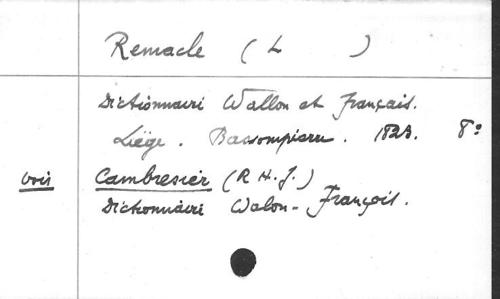 Remacle (L )
Dictionnaire Wallon et Français.
Liège. Bassompierre. 1823. 8°
voir Cambresier (R H. J.)
Dictionnaire Walon-François.